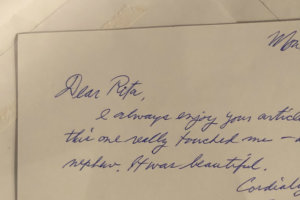 Dear Rita,
I always enjoy your
this one really touched me –
nephew. It was beautiful.